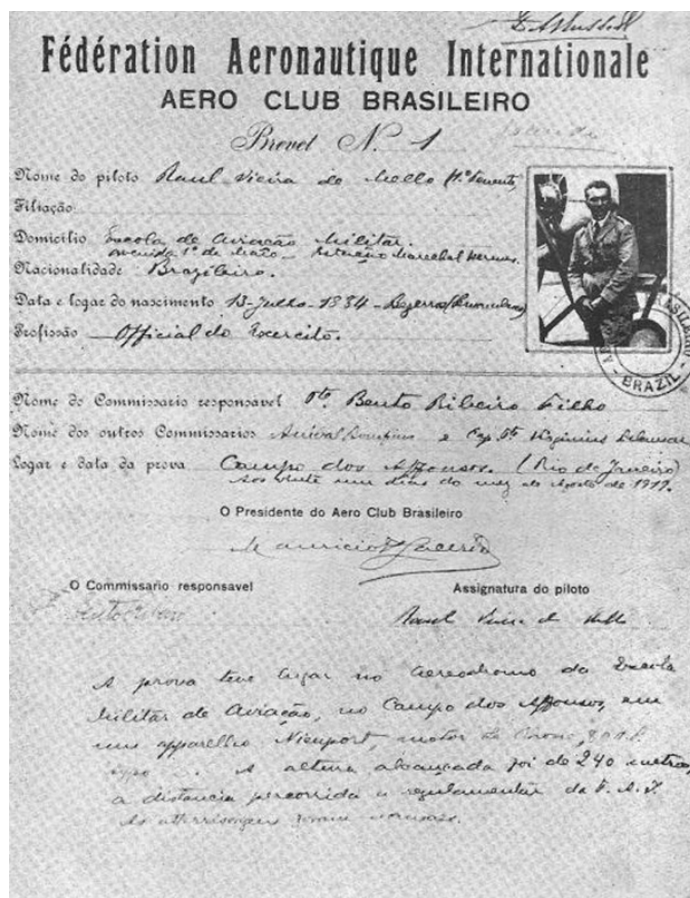 Fédération Aeronautique Internationale
AERO CLUB BRASILEIRO
Brevet N. 1
Nome do piloto Raul Vieira de Mello (1º Tenente)
Filiação
Domicilio Escola de Aviação Militar.
Avenida 1º de Maio – Estação Marechal Hermes.
Nacionalidade Brazileiro.
Data e logar do nascimento 13-Julho-1884-Bezerros
Profissão Official do Exercito.
BRAZIL
Nome do Commissario responsavel Bento Ribeiro Filho
Nome dos outros Commissarios e Cap. Virginius
Logar e data da prova Campo dos Affonsos. (Rio de Janeiro)
Aos vinte um dias do mez de Agosto de 1919.
O Presidente do Aero Club Brasileiro
O Commissario responsavel
Assignatura do piloto
Raul Vieira de Mello
A prova teve logar no aerodromo da Escola
Militar de Aviação, no Campo dos Affonsos, em
um apparelho Nieuport, motor Le Rhone,
A altura alcançada foi de 240 metros
a distancia percorrida a regulamentar da F. A. I.
As atterrissagens foram